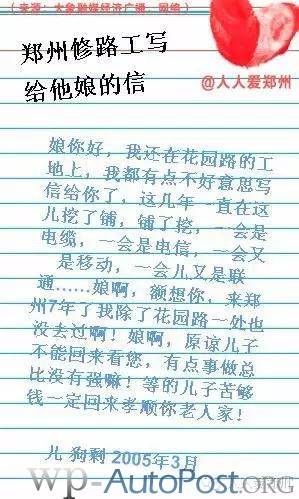 （来源：大象融媒经济广播、网络）
郑州修路工写
给他娘的信
@人人爱郑州
娘你好，我还在花园路的工
地上，我都有点不好意思写
信给你了，这几年一直在这
儿挖了铺，铺了挖，一会是
电缆，一会是电信，一会又
是移动，一会儿又是联
通……娘啊，额想你，来郑
州7年了我除了花园路一处也
没去过啊！娘啊，原谅儿子
不能回来看您，有点事做总
比没有强嘛！等的儿子苦够
钱一定回来孝顺你老人家！
儿 狗剩 2005年3月
wp-AutoPost.ORG